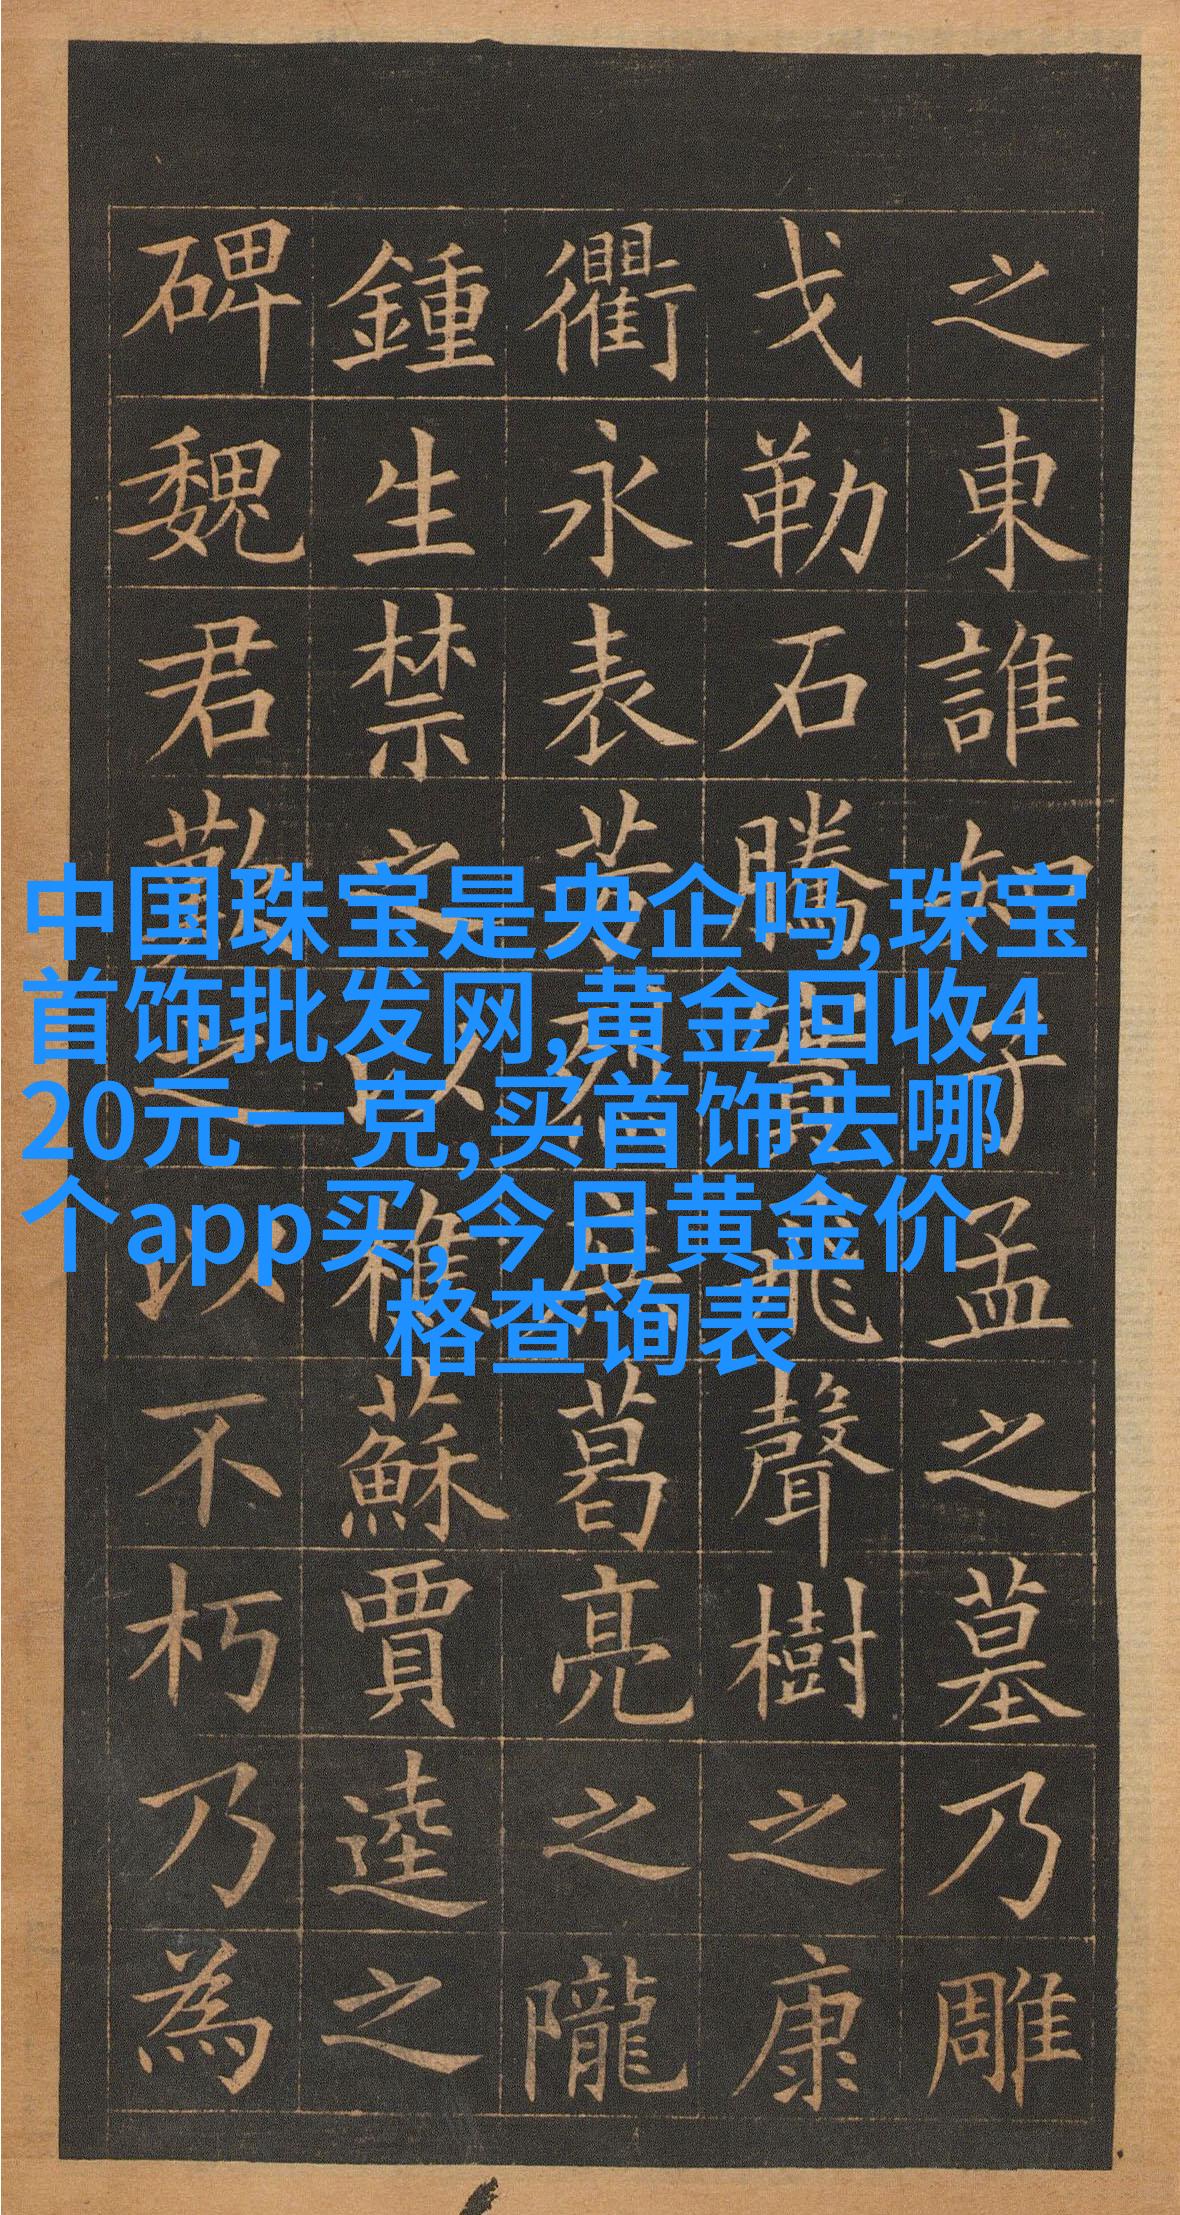 之東誰知子孟之墓乃雕
戈勒石騰實飛聲樹之康
衢永表芳葛亮之隴
鍾生禁之以樵蘇賈逵之
碑魏君勤之以不朽乃為
中国珠宝是央企吗,珠宝
首饰批发网,黄金回收4
20元一克,买首饰去哪
个app买,今日黄金价
格查询表